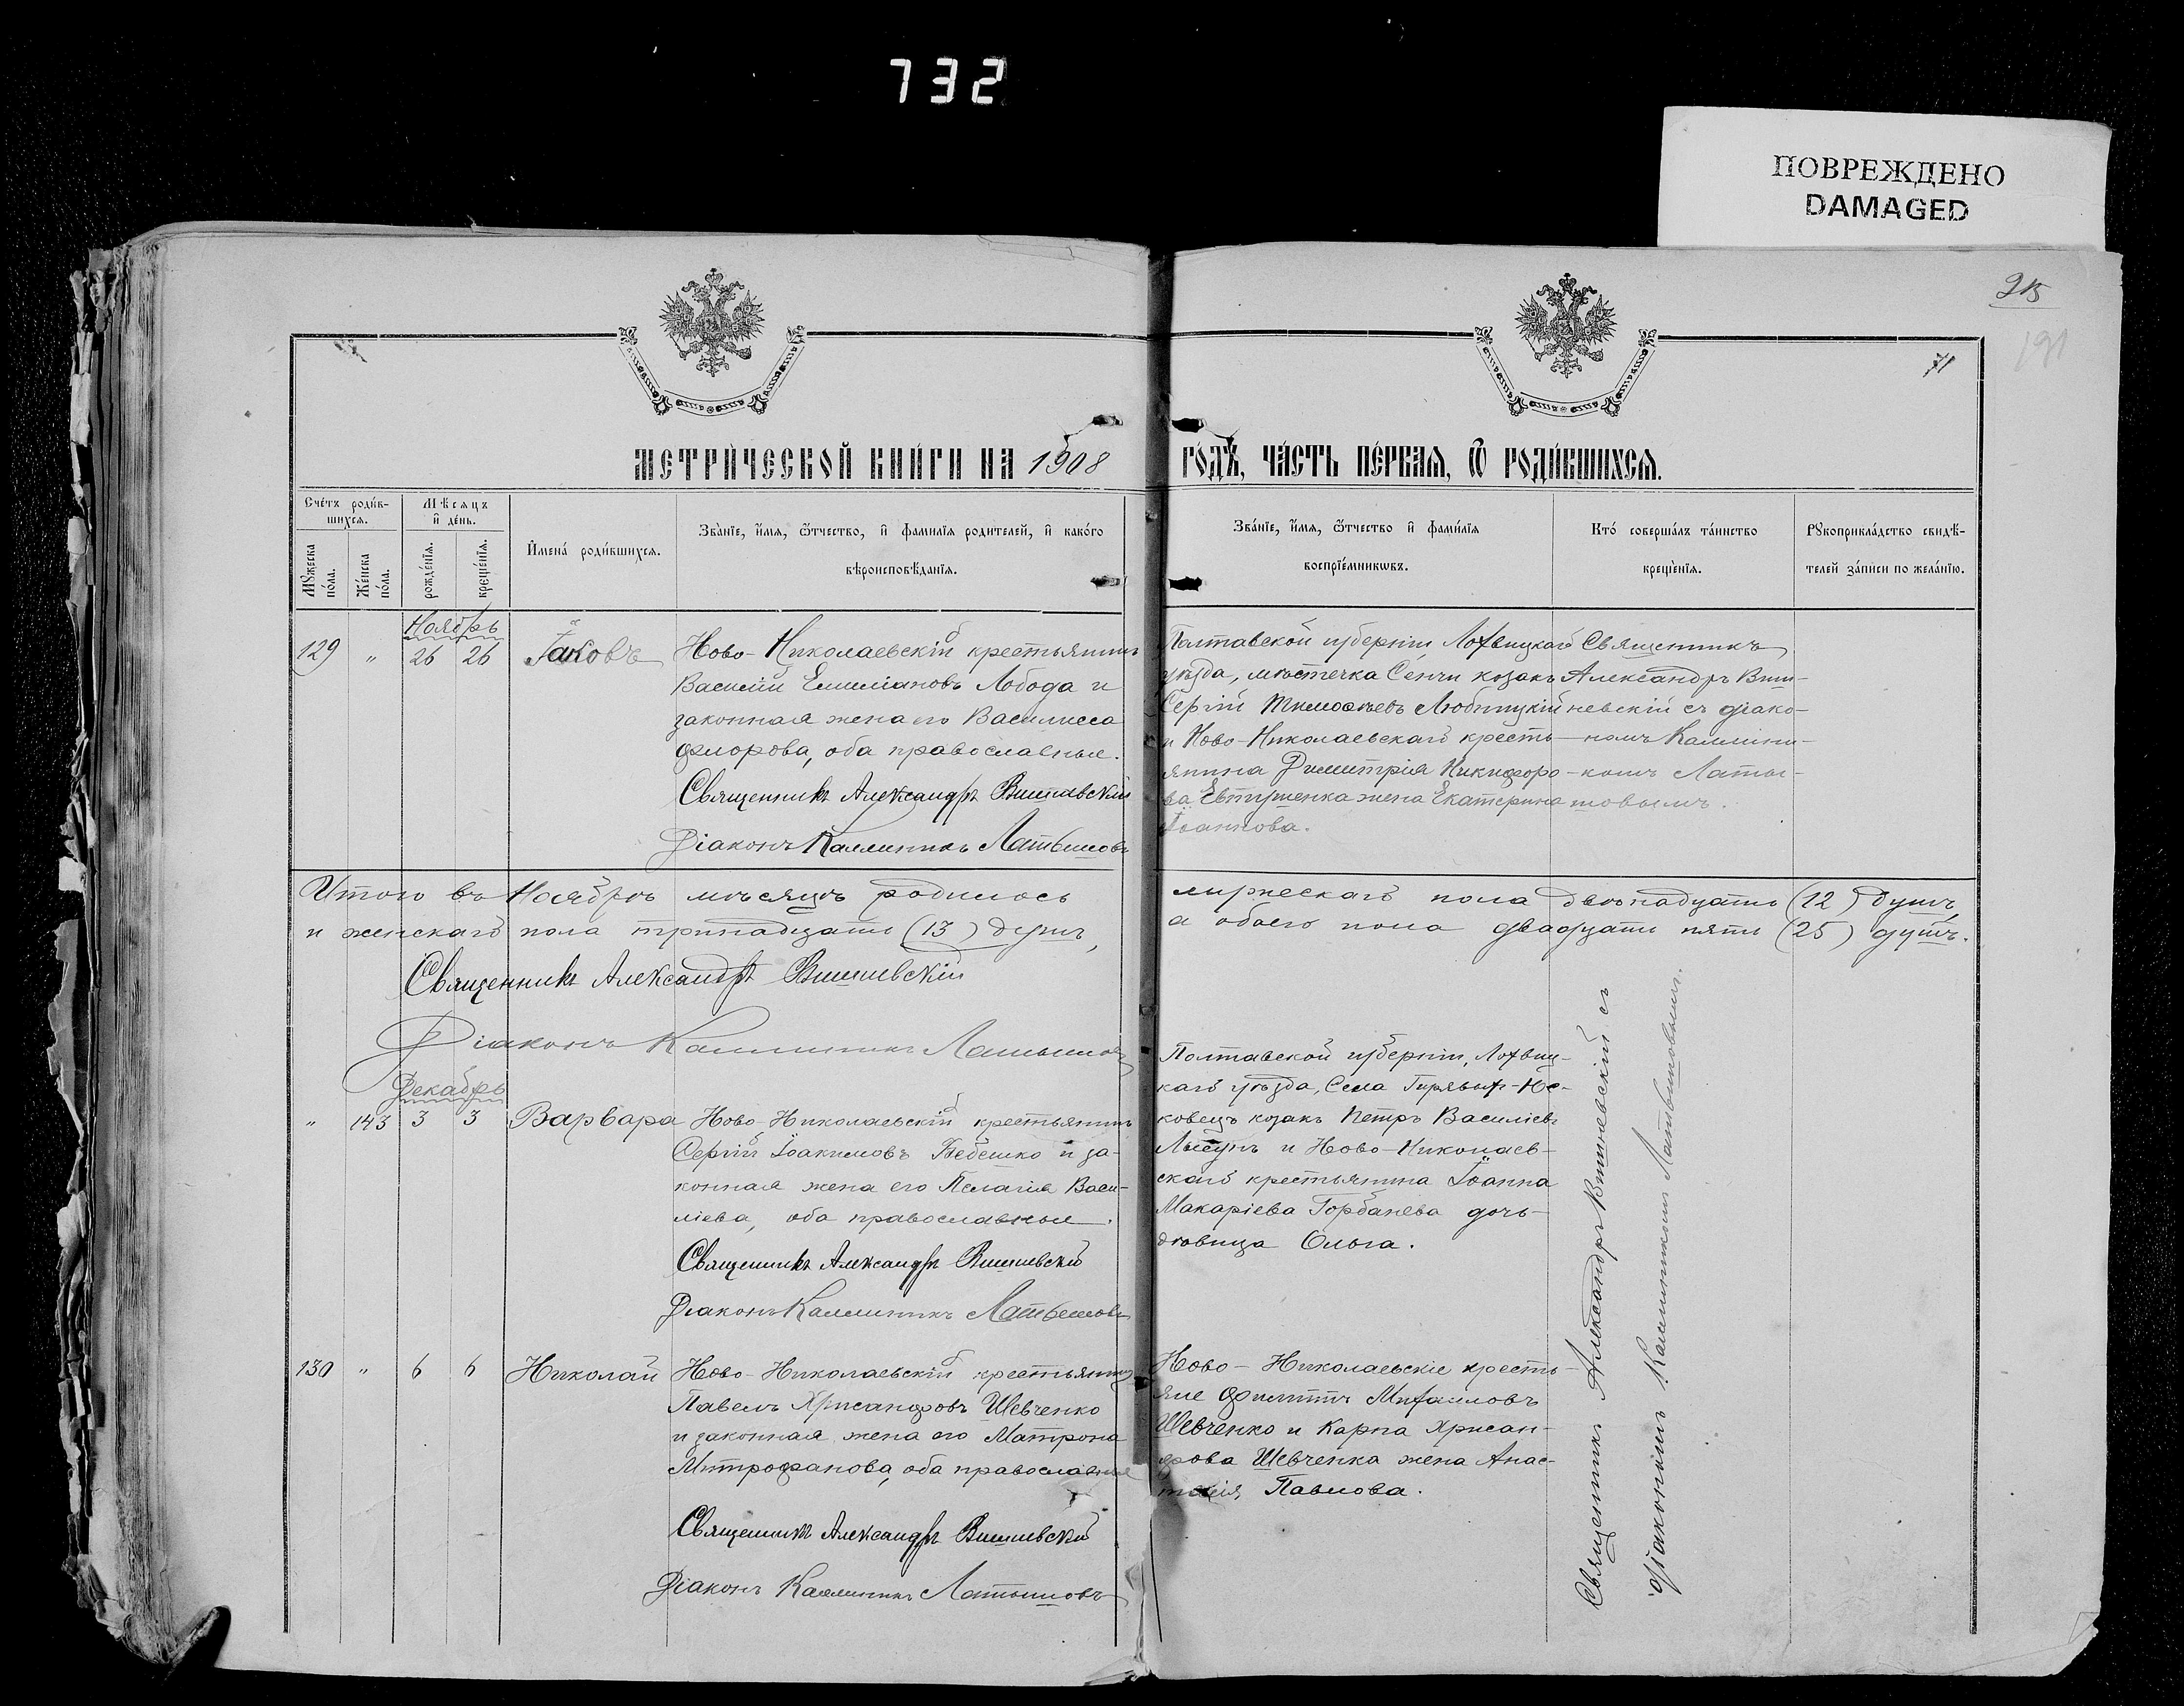 732
ПОВРЕЖДЕНО
DAMAGED
215
191
71
МЕТРИ́ЧЕСКОЙ КНИ́ГИ НА 1908
ГО́ДЪ, ЧА́СТЬ ПЕ́РВАЯ, Ѽ РОДИ́ВШИХСЯ.
Сче́тъ роди́в-
шихся.
Мѣ́сяцъ
и҆ де́нь.
Мꙋ́жеска
по́ла.
Же́нска
по́ла.
рожде́нїя.
креще́нїя.
И҆мена́ роди́вшихся.
Зва́нїе, и҆́мя, ѻ҆́тчество, и҆ фами́лїя роди́телей, и҆ како́го
вѣроисповѣ́данїя.
Зва́нїе, и҆́мя, ѻ҆́тчество и҆ фами́лїя
воспрїе́мникѡвъ.
Кто́ соверша́лъ та́инство
креще́нїя.
Рꙋкоприкла́дство свидѣ́-
телей за́писи по жела́нїю.
Ноябрь
129 " 26 26 Іаковъ
Ново-Николаевскій крестьянинъ
Василій Емиліановъ Лобода и
законная жена его Василисса
Флорова, оба православные.
Священникъ Александръ Вишневскій
Діаконъ Каллиникъ Латышовъ
Полтавской губерніи Лохвицкаго
уѣзда, мѣстечка Сенчи козакъ
Сергій Тимоѳеевъ Любицкій
и Ново-Николаевскаго кресть-
янина Димитрія Никифоро-
ва Евтушенка жена Екатерина
Іоаннова.
Священникъ
Александръ Виш-
невскій съ діако-
номъ Каллини-
комъ Латы-
шовымъ.
Итого въ Ноябрѣ мѣсяцѣ родилось
мужескаго пола двѣнадцать (12) душъ,
и женскаго пола тринадцать (13) душъ,
а обоего пола двадцать пять (25) душъ.
Священникъ Александръ Вишневскій
Діаконъ Каллиникъ Латышовъ
Декабрь
" 143 3 3 Варвара
Ново-Николаевскій крестьянинъ
Сергій Іоакимовъ Бебешко и за-
конная жена его Пелагія Васи-
ліева, оба православные.
Священникъ Александръ Вишневскій
Діаконъ Каллиникъ Латышовъ
Полтавской губерніи, Лохвиц-
каго уѣзда, Села Гирявыхъ-Ис-
ковецъ козакъ Петръ Василіевъ
Лысунъ и Ново-Николаев-
скаго крестьянина Іоанна
Макаріева Горбанева дочь
дѣвица Ольга.
130 " 6 6 Николай
Ново-Николаевскій крестьянинъ
Павелъ Хрисанфовъ Шевченко
и законная жена его Матрона
Митрофанова, оба православные
Священникъ Александръ Вишневскій
Діаконъ Каллиникъ Латышовъ
Ново-Николаевскіе кресть-
яне Филиппъ Михаиловъ
Шевченко и Карпа Хрисан-
фова Шевченка жена Анас-
тасія Павлова.
Священникъ Александръ Вишневскій съ
діакономъ Каллиникомъ Латышовымъ.